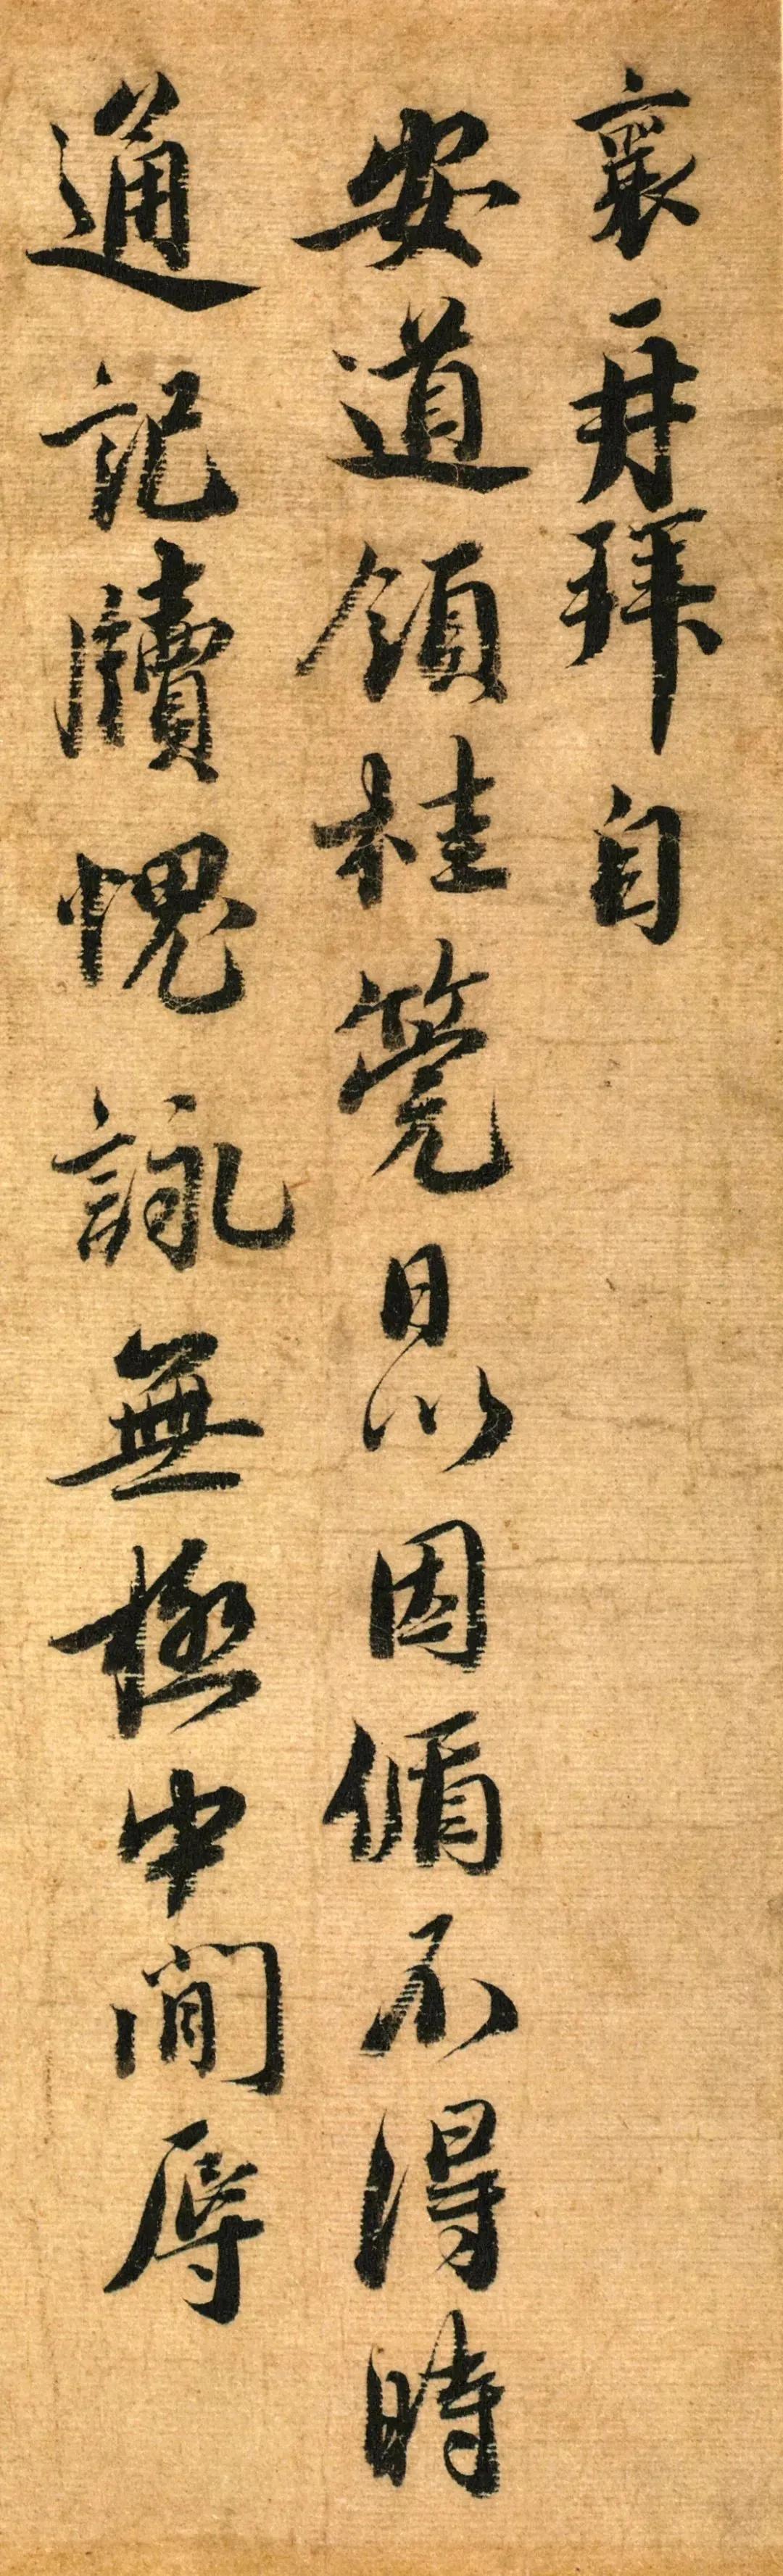 襄再拜自
安道領桂筦日以因循不得時
通記牘愧詠無極中間辱